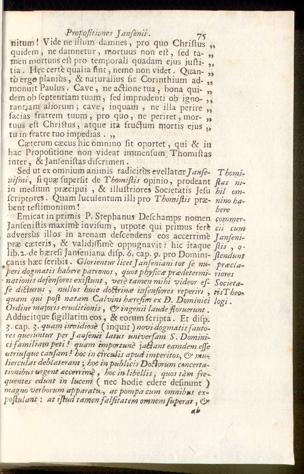 Propositiones Jansenii. 75
nitum! Vide ne illum damnes, pro quo Christus „
quidem, ne damnetur, mortuus non est, sed ta- „
men mortuus est pro temporali quadam ejus justi- „
tia. Hæc certè qualia sint, nemo non videt. Quan- „
tò ergo planiùs, & naturaliùs sic Corinthium ad- „
monuit Paulus. Cave, ne actione tua, bona qui- „
dem ob scientiam tuam, sed imprudenti ob igno- „
rantiam aliorum; cave, inquam, ne illa perire „
facias fratrem tuum, pro quo, ne periret, mor- „
tuus est Christus, atque ita fructum mortis ejus „
tu in fratre tuo impedias. „
Cæterum cæcus hic omnino sit oportet, qui & in
hac Propositione non videat immensum Thomistas
inter, & Jansenistas discrimen.
Sed ut ex omnium animis radicitùs evellatur Janse-
nismi, sique superest de Thomistis opinio, prodeant
in medium præcipui, & illustriores Societatis Jesu
scriptores. Quam luculentum illi pro Thomistis præ-
bent testimonium!
Emicat in primis P. Stephanus Deschamps nomen
Jansenistis maximè invisum, utpote qui primus ferè
adversùs illos in arenam descendens eos accerrimè
præ cæteris, & validissimè oppugnavit: hic itaque
lib. 2. de hæresi Janseniana disp. 6. cap. 9. pro Domini-
canis hæc scribit. Glorientur licet Janseniani tot se nu-
peri dogmatis habere patronos, quot physicæ prædetermi-
nationis defensores existunt, verè tamen mihi videor es-
se dicturus, nullos huic doctrinæ infensiores reperiri,
quam qui post natam Calvini hæresim ex D. Dominici
Ordine majoris eruditionis, & ingenii laude floruerunt.
Adducitque sigillatim eos, & eorum scripta. Et disp.
3. cap. 3. quàm invidosè (inquit) novi dogmatis fauto-
res queruntur per Jansenii latus universam S. Domini-
ci familiam peti! quàm importunè jactant eandem esse
utriusque causam! hoc in circulis apud imperitos, & mu-
lierculas deblaterant; hoc in publicis Doctorum concerta-
tionibus urgent accerrimè, hoc in libellis, quos tàm fre-
quentes edunt in lucem (nec hodie edere desinunt)
magno verborum apparatu, ac pompa cum omnibus ex-
postulant: at istud tamen falsitatem omnem superat, &
ab
Thomi-
stas ni-
hil om-
nino ha-
bere
commer-
cii cum
Janseni-
stis, o-
stendunt
præcla-
riores
Societa-
tis Theo-
logi.